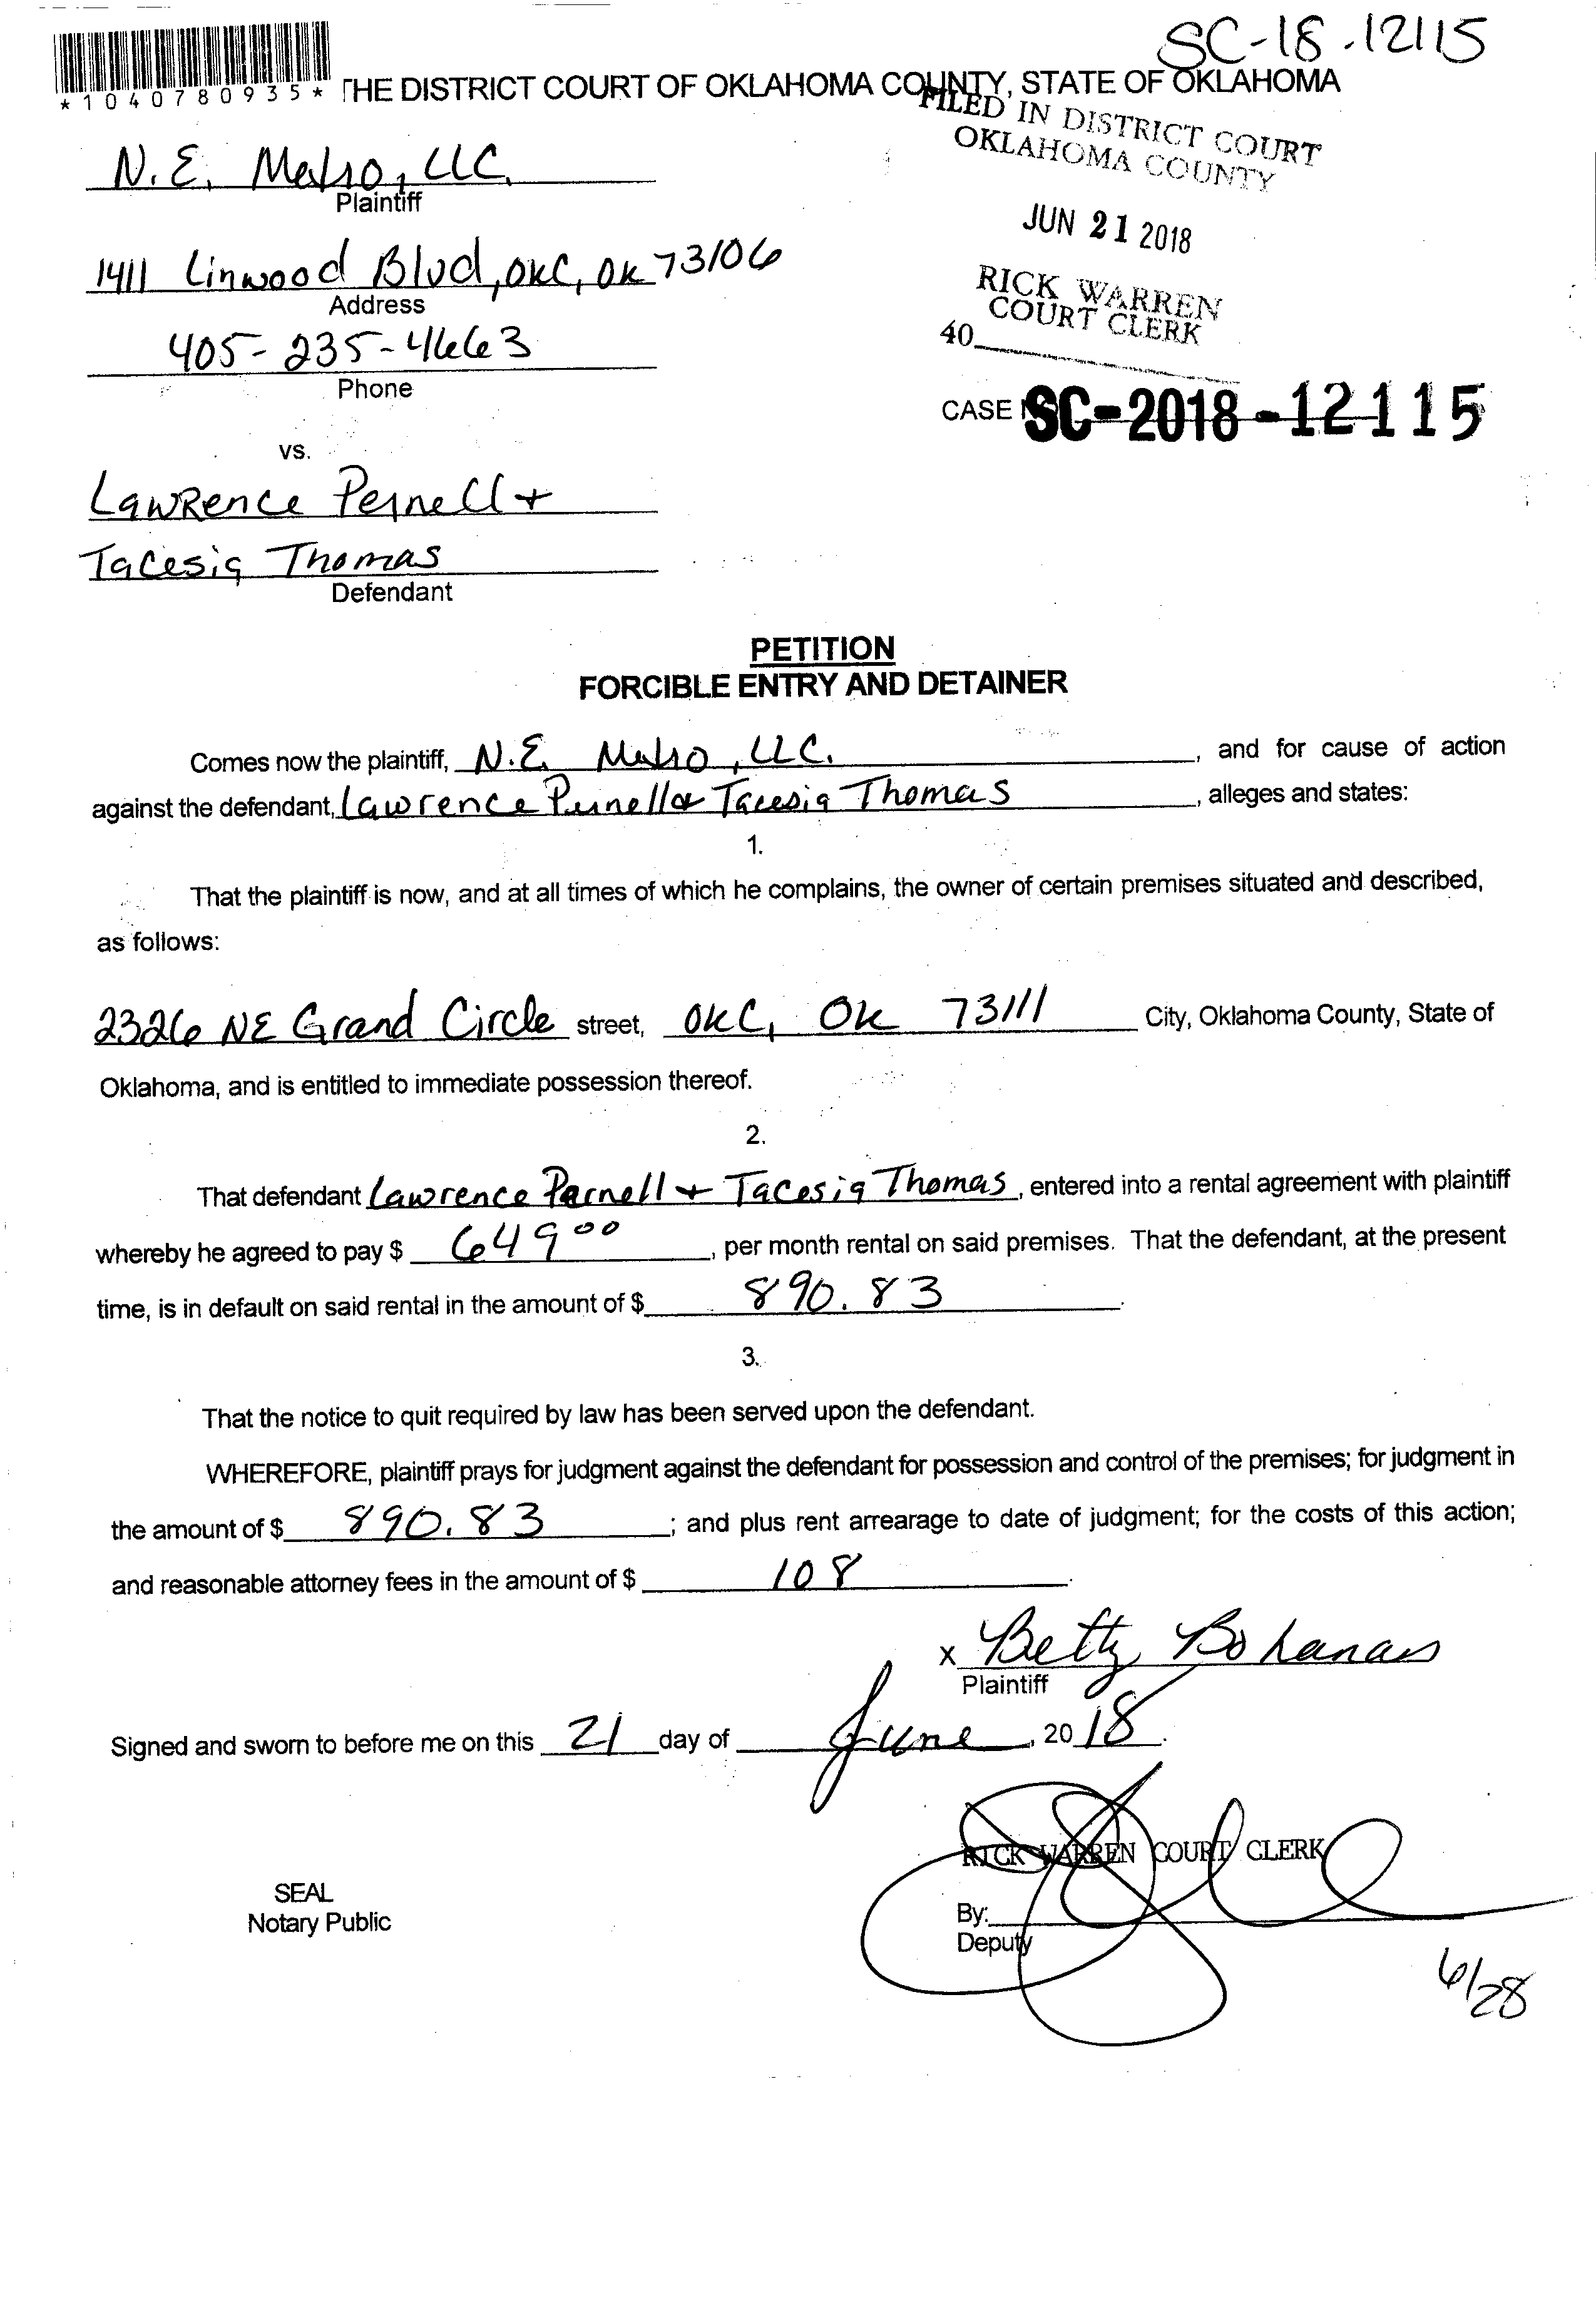 SC-18-12115
*1040780935* THE DISTRICT COURT OF OKLAHOMA COUNTY, STATE OF OKLAHOMA
FILED IN DISTRICT COURT
OKLAHOMA COUNTY
N.E. Metro, LLC.
Plaintiff
JUN 21 2018
1411 Linwood Blvd, OKC, OK 73106
Address
RICK WARREN
COURT CLERK
405-235-4663
40
Phone
CASE SC-2018-12115
vs.
Lawrence Pernell +
Tacesia Thomas
Defendant
PETITION
FORCIBLE ENTRY AND DETAINER
Comes now the plaintiff, N.E. Metro, LLC. , and for cause of action
against the defendant, Lawrence Pernell & Tacesia Thomas , alleges and states:
1.
That the plaintiff is now, and at all times of which he complains, the owner of certain premises situated and described,
as follows:
2326 NE Grand Circle street, OKC, OK 73111 City, Oklahoma County, State of
Oklahoma, and is entitled to immediate possession thereof.
2.
That defendant Lawrence Parnell + Tacesia Thomas, entered into a rental agreement with plaintiff
whereby he agreed to pay $ 649.00 , per month rental on said premises. That the defendant, at the present
time, is in default on said rental in the amount of $ 890.83 .
3.
That the notice to quit required by law has been served upon the defendant.
WHEREFORE, plaintiff prays for judgment against the defendant for possession and control of the premises; for judgment in
the amount of $ 890.83 ; and plus rent arrearage to date of judgment; for the costs of this action;
and reasonable attorney fees in the amount of $ 108 .
x Betty Bohanan
Plaintiff
Signed and sworn to before me on this 21 day of June, 2018.
RICK WARREN COURT CLERK
SEAL
Notary Public
By:
Deputy
6/28